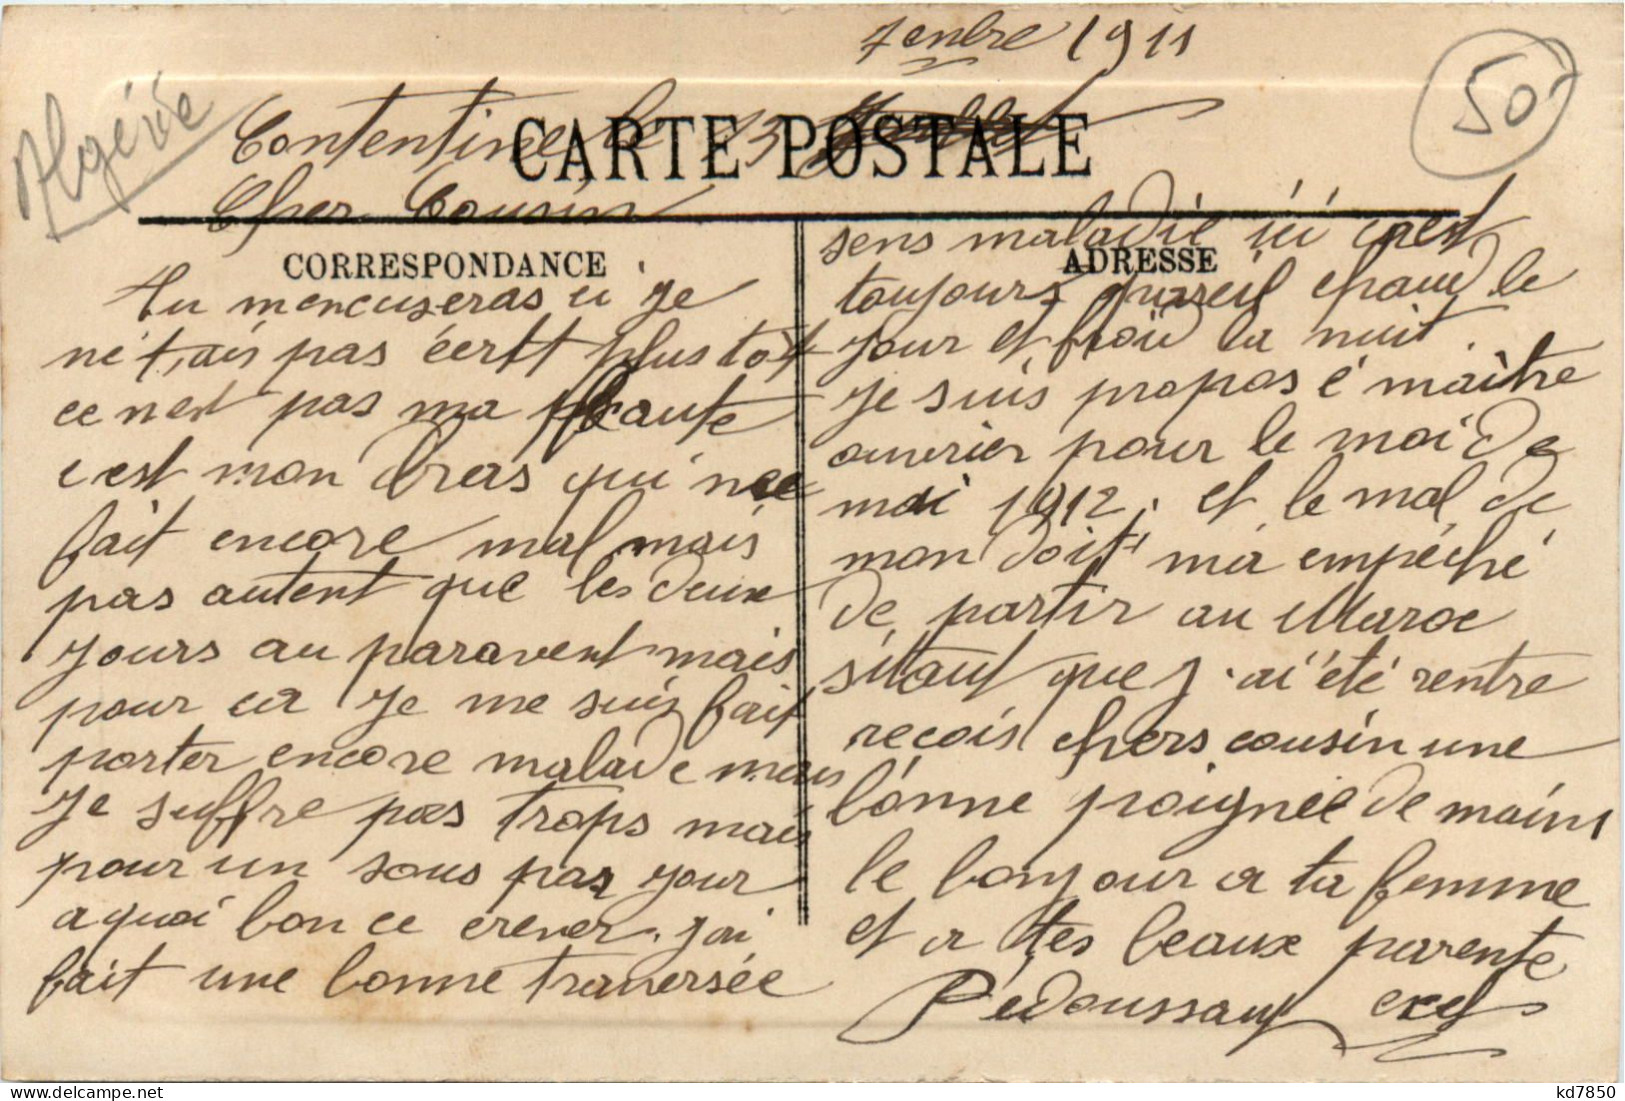 7enbre 1911
Algérie
50
Contentine le 13
CARTE POSTALE
Cher Cousin
CORRESPONDANCE
Tu mencuseras si je
ne t,ais pas écrit plus tot
ce nest pas ma faute
c est mon bras qui me
fait encore mal mais
pas autent que les deux
jours au paravent mais
pour ca je me suis fait
porter encore malade mais
je suffre pas trops mais
pour un sous par jour
a quoi bon ce crever. jai
fait une bonne traversée
ADRESSE
sens maladie ici cest
toujours pareil chaud le
jour et froid la nuit.
je suis propos é maitre
ouvrier pour le moi de
mai 1912. et le mal de
mon doit ma empéché
de partir au Maroc
sitaut que j'ai été rentre
recois chers cousin une
bonne poignée de mains
le bonjour a ta femme
et a tes beaux parente
Pédoussaut
kd7850